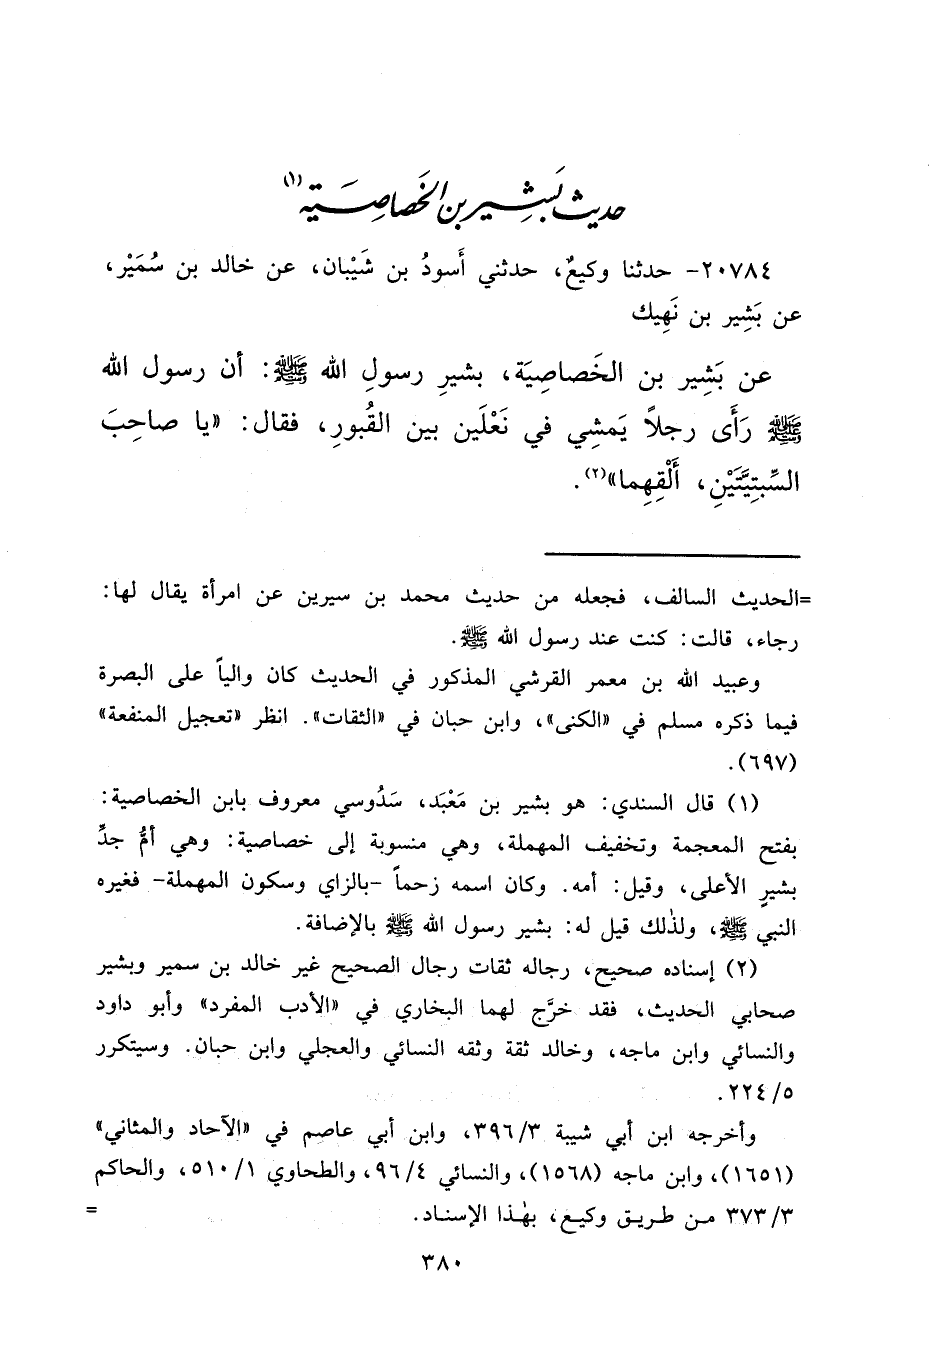 حديث بَشِير بن الخَصاصِيَة (١)
٢٠٧٨٤- حدثنا وكيعٌ، حدثني أَسودُ بن شَيْبان، عن خالد بن سُمَيْر،
عن بَشِير بن نَهِيك
عن بَشِير بن الخَصاصِيَة، بشيرِ رسولِ الله ﷺ: أن رسول الله
ﷺ رَأَى رجلاً يَمشِي في نَعْلَين بين القُبورِ، فقال: «يا صاحِبَ
السِّبتِيَّتَيْنِ، أَلْقِهِما»(٢).
=الحديث السالف، فجعله من حديث محمد بن سيرين عن امرأة يقال لها:
رجاء، قالت: كنت عند رسول الله ﷺ.
وعبيد الله بن معمر القرشي المذكور في الحديث كان والياً على البصرة
فيما ذكره مسلم في «الكنى»، وابن حبان في «الثقات». انظر «تعجيل المنفعة»
(٦٩٧).
(١) قال السندي: هو بشير بن مَعْبَد، سَدُوسي معروف بابن الخصاصية:
بفتح المعجمة وتخفيف المهملة، وهي منسوبة إلى خصاصية: وهي أمُّ جدِّ
بشيرٍ الأعلى، وقيل: أمه. وكان اسمه زحماً -بالزاي وسكون المهملة- فغيره
النبي ﷺ، ولذٰلك قيل له: بشير رسول الله ﷺ بالإضافة.
(٢) إسناده صحيح، رجاله ثقات رجال الصحيح غير خالد بن سمير وبشير
صحابي الحديث، فقد خرَّج لهما البخاري في «الأدب المفرد» وأبو داود
والنسائي وابن ماجه، وخالد ثقة وثقه النسائي والعجلي وابن حبان. وسيتكرر
٢٢٤/٥.
وأخرجه ابن أبي شيبة ٣٩٦/٣، وابن أبي عاصم في «الآحاد والمثاني»
(١٦٥١)، وابن ماجه (١٥٦٨)، والنسائي ٩٦/٤، والطحاوي ٥١٠/١، والحاكم
٣٧٣/٣ من طريق وكيع، بهٰذا الإسناد. =
٣٨٠